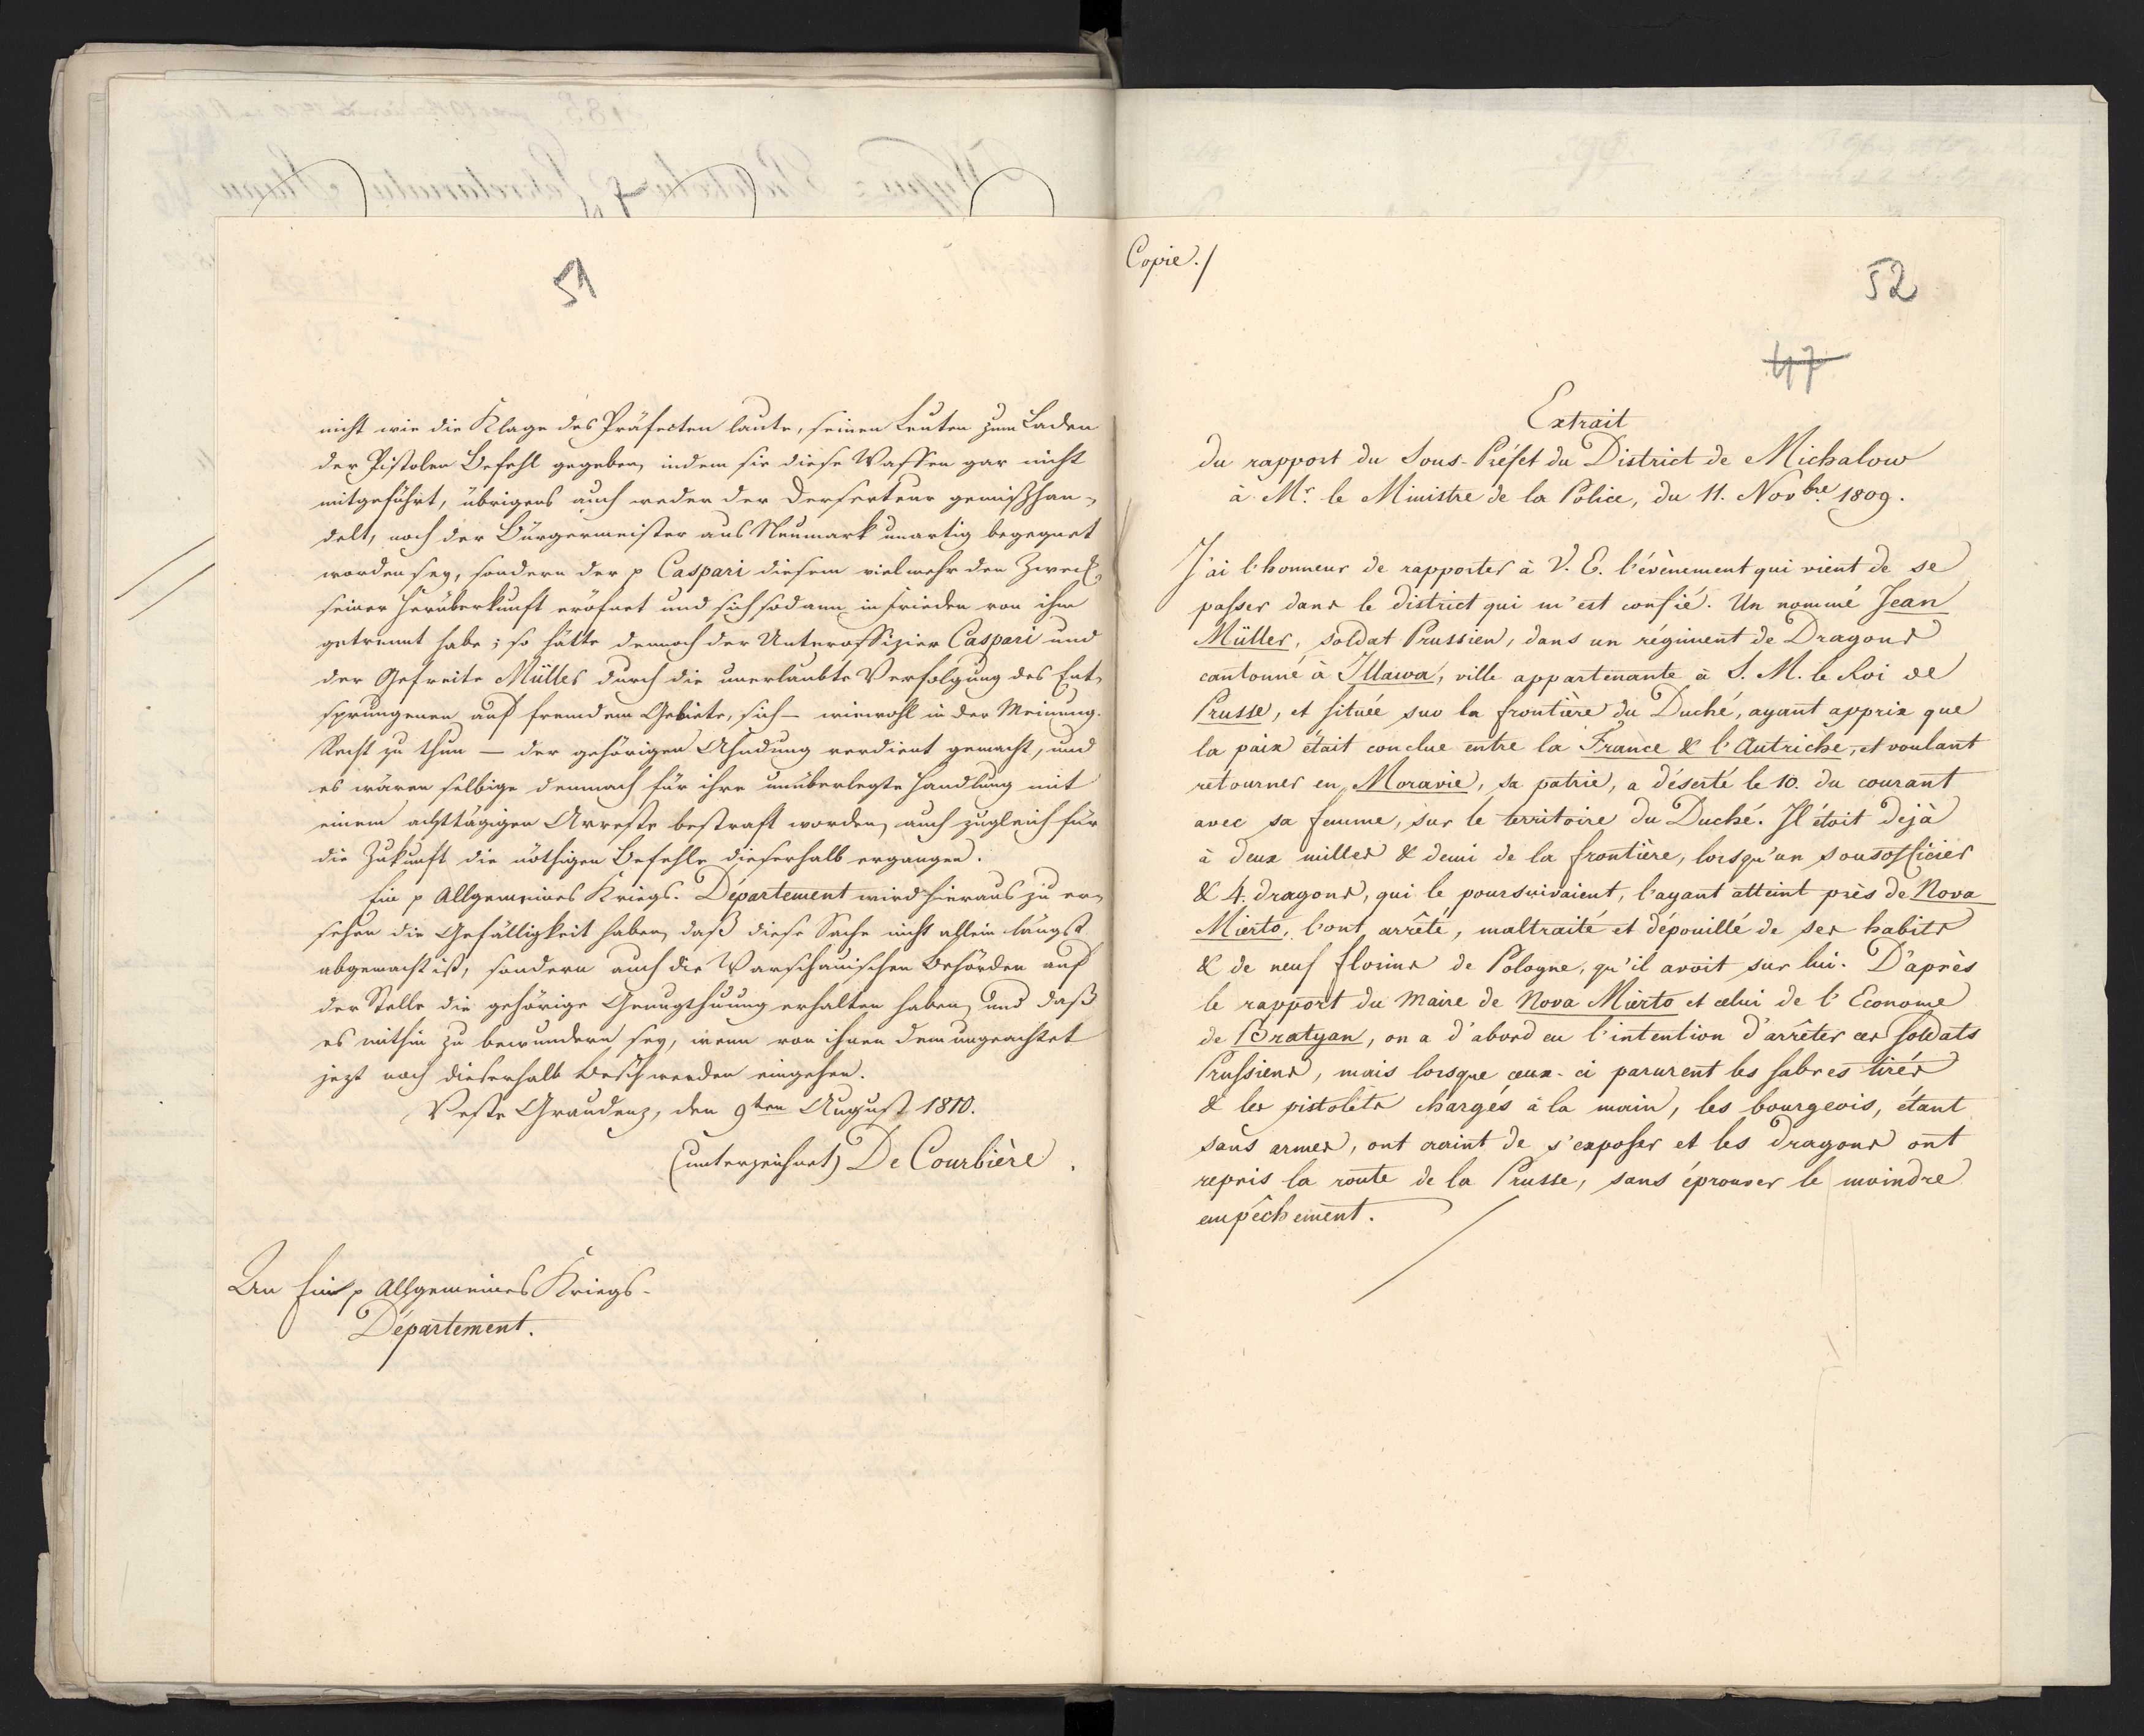 51
nicht wie die Klage des Präfecten laute, seinen Leuten zum Laden
der Pistolen Befehl gegeben, indem sie diese Waffen gar nicht
mitgeführt, übrigens auch weder der Deserteur gemißhan-
delt, noch der Bürgermeister aus Neumark unartig begegnet
worden sey, sondern der p Caspari diesem vielmehr den Zweck
seiner Herüberkunft eröfnet und sich sodann in Frieden von ihm
getrennt habe; so hätte dennoch der Unteroffizier Caspari und
der Gefreite Müller durch die unerlaubte Verfolgung des Ent-
sprungenen auf fremdem Gebiete, sich – wiewohl in der Meinung
Recht zu thun – der gehörigen Ahndung verdient gemacht, und
es wären selbige demnach für ihre unüberlegte Handlung mit
einem achttägigen Arreste bestraft worden, auch zugleich für
die Zukunft die nöthigen Befehle dieserhalb ergangen.
Ein p Allgemeines Kriegs-Département wird hieraus zu er-
sehen die Gefälligkeit haben, daß diese Sache nicht allein längst
abgemacht ist, sondern auch die Warschauischen Behörden auf
der Stelle die gehörige Genugthuung erhalten haben, und daß
es mithin zu bewundern sey, wenn von ihnen dem ungeachtet
jezt noch dieserhalb Beschwerden eingehen.
Veste Graudenz, den 9ten August 1810.
(unterzeichnet) De Courbière.
An Ein p Allgemeines Kriegs-
Département.
Copie./
52
47
Extrait
du rapport du Sous-Préfet du District de Michalow
à Mr. le Ministre de la Police, du 11. Novbre 1809.
J'ai l'honneur de rapporter à V. E. l'évènement qui vient de se
passer dans le district qui m'est confié. Un nommé Jean
Müller, soldat Prussien, dans un régiment de Dragons
cantonné à Illawa, ville appartenante à S. M. le Roi de
Prusse, et située sur la frontière du Duché, ayant apprix que
la paix était conclue entre la France & l'Autriche, et voulant
retourner en Moravie, sa patrie, a déserté le 10. du courant
avec sa femme, sur le territoire du Duché. Il étoit dejà
à deux milles & demi de la frontière, lorsqu'un sousofficier
& 4. dragons, qui le poursuivaient, l'ayant atteint près de Nova
Mierto, l'ont arrêté, maltraité et dépouillé de ses habits
& de neuf florins de Pologne, qu'il avoit sur lui. D'après
le rapport du Maire de Nova Mierto et celui de l'Econome
de Bratyan, on a d'abord eu l'intention d'arrêter ces soldats
Prussiens, mais lorsque ceux-ci parurent les sabres tirés
& les pistolets chargés à la main, les bourgeois, étant
sans armes, ont craint de s'exposer et les dragons ont
repris la route de la Prusse, sans éprouver le moindre
empêchement.